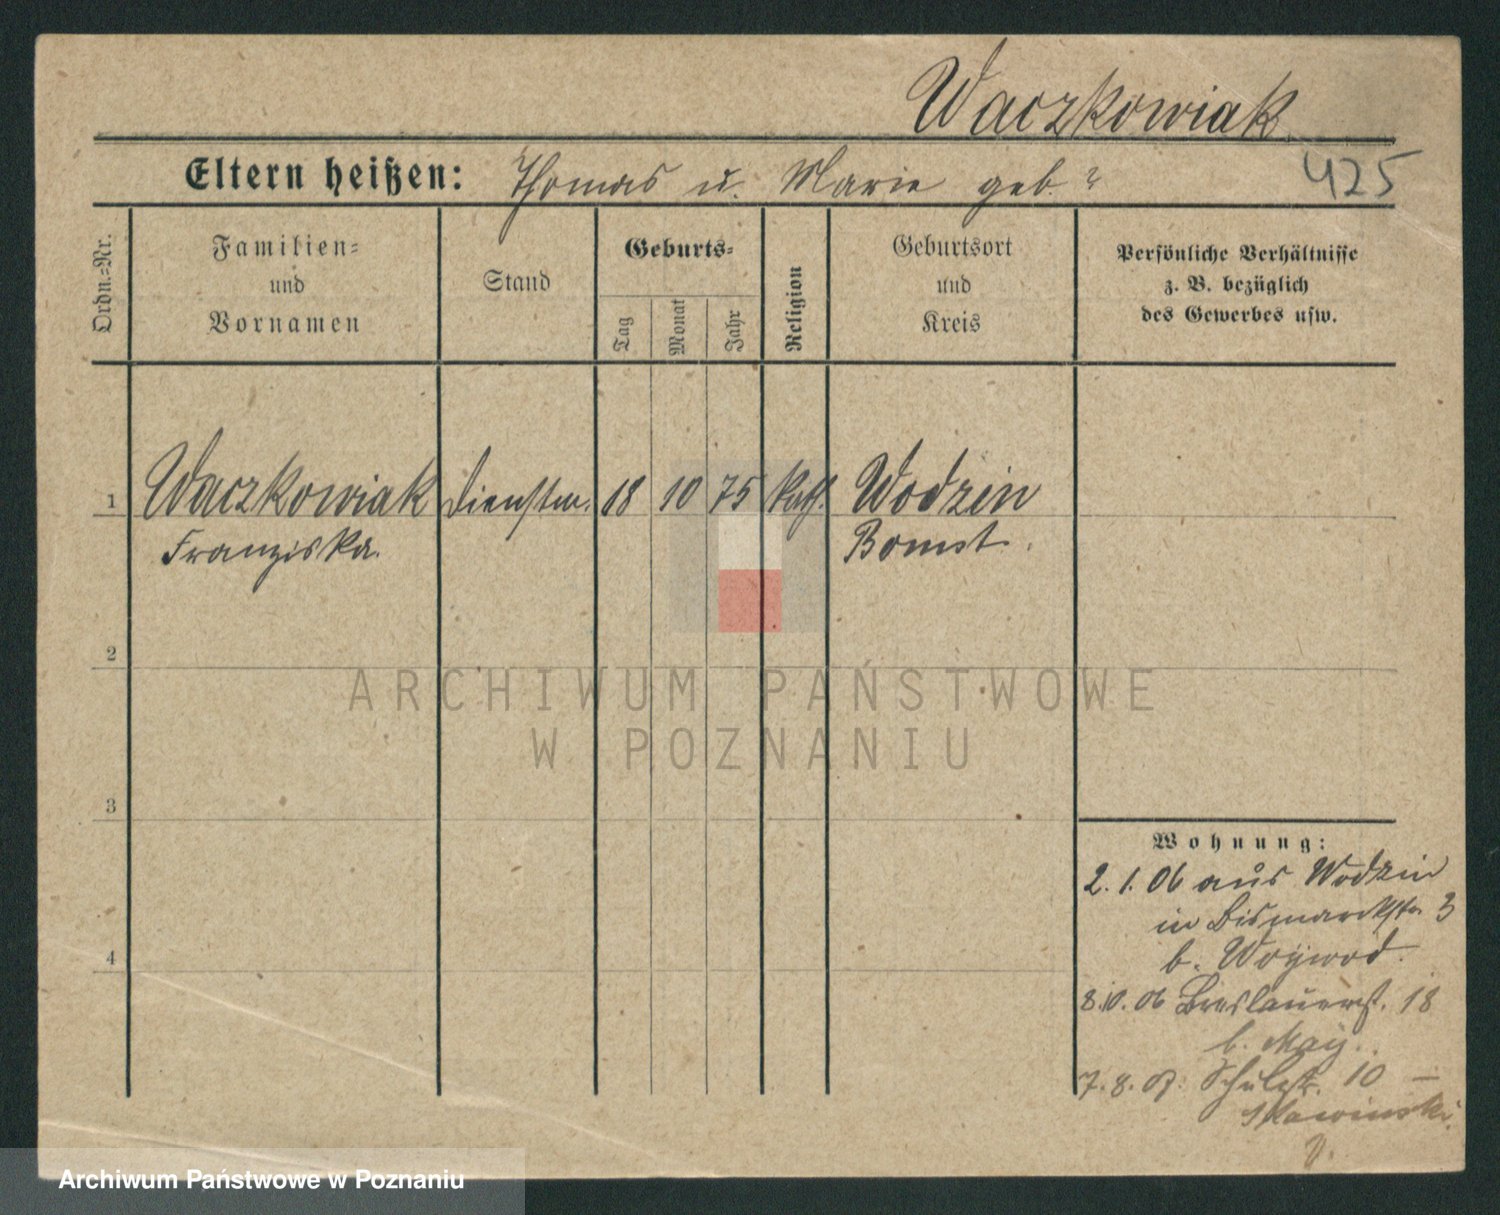 Waczkowiak
Eltern heißen: Thomas u. Marie geb. ?
425
Ordn.=Nr.
Familien=
und
Vornamen
Stand
Geburts=
Tag
Monat
Jahr
Religion
Geburtsort
und
Kreis
Persönliche Verhältnisse
z. B. bezüglich
des Gewerbes usw.
1 Waczkowiak Dienstm. 18 10 75 kath. Wodzin
Franziska. Bomst.
2
ARCHIWUM PAŃSTWOWE
W POZNANIU
3
Wohnung:
2. 1. 06 aus Wodzin
in Bismarckstr. 3
b. Woywod.
4
8. 10. 06 Breslauerst. 18
b. May.
7. 8. 07. Schulstr. 10 —
Archiwum Państwowe w Poznaniu